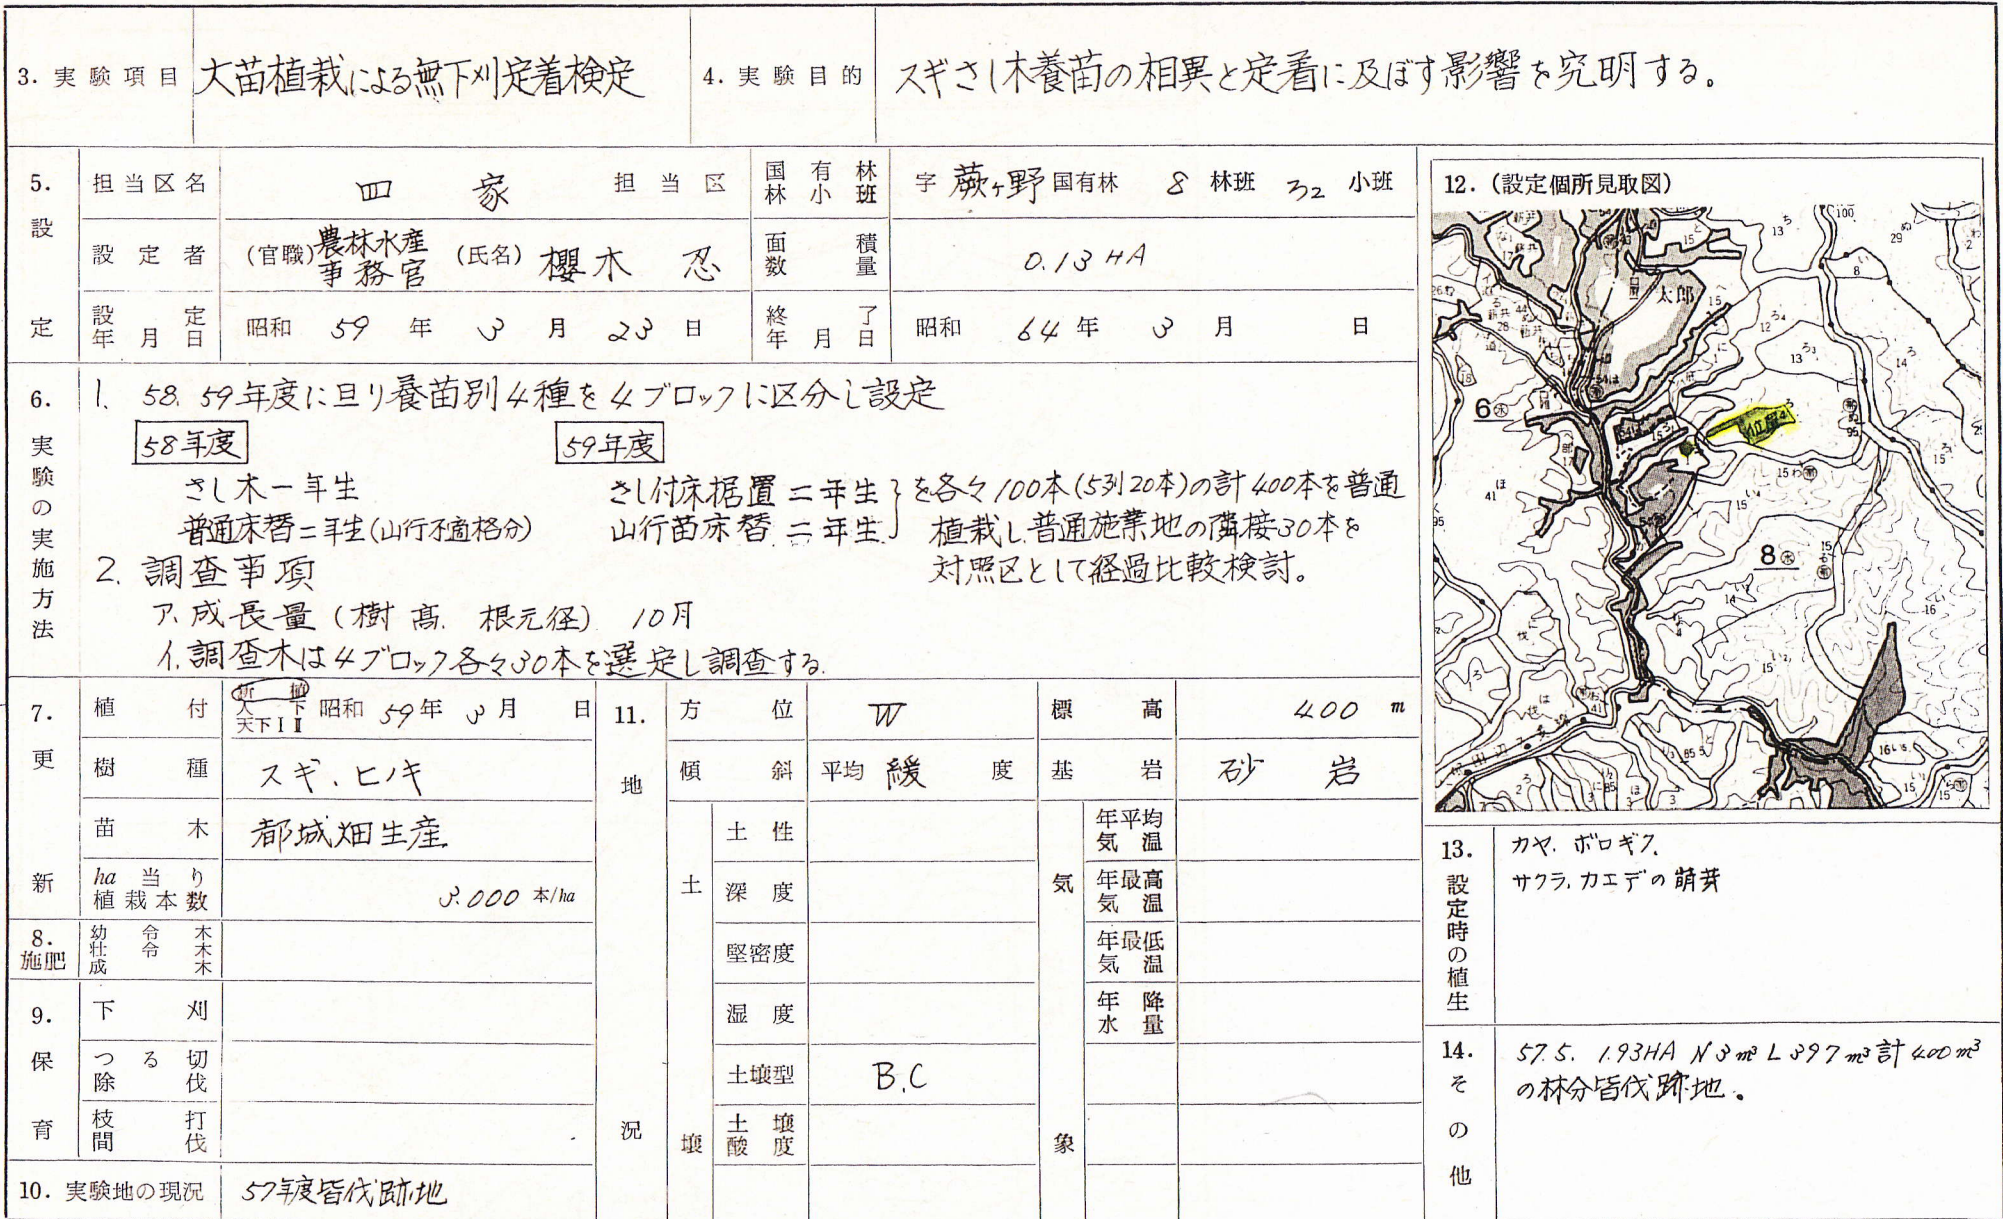 3. 実験項目 大苗植栽による無下刈定着検定
4. 実験目的 スギさし木養苗の相異と定着に及ぼす影響を究明する。
5. 設定
担当区名 四家 担当区
国有林 林小班 字 蕨ヶ野 国有林 8 林班 32 小班
設定者 (官職) 農林水産事務官 (氏名) 櫻木 忍
面積 数量 0.13 HA
設定年月日 昭和 59 年 3 月 23 日
終了年月日 昭和 64 年 3 月 日
6. 実験の実施方法
1. 58. 59年度に旦り養苗別4種を4ブロックに区分し設定
58年度 59年度
さし木一年生 さし付床据置二年生 を各々100本(5列20本)の計400本を普通
普通床替二年生(山行不適格分) 山行苗床替二年生 植栽し普通施業地の隣接30本を
対照区として経過比較検討。
2. 調査事項
ア. 成長量 (樹高. 根元径) 10月
イ. 調査木は4ブロック各々30本を選定し調査する.
7. 更新
植付 新植 人下 天下ⅠⅡ 昭和 59年 3月 日
樹種 スギ. ヒノキ
苗木 都城畑生産
ha当り植栽本数 3.000 本/ha
8. 施肥 幼令木 壮令木 成木
9. 保育
下刈
つる切 除伐
枝打 間伐
10. 実験地の現況 57年度皆伐跡地
11. 地況
方位 W
標高 400 m
傾斜 平均 緩 度
基岩 砂岩
土壌
土性
深度
堅密度
湿度
土壌型 B.C
土壌酸度
気象
年平均気温
年最高気温
年最低気温
年降水量
12. (設定個所見取図)
太郎
6
8
13. 設定時の植生
カヤ. ボロギク.
サクラ. カエデの萌芽
14. その他
57.5. 1.93HA N 3m³ L 397m³ 計 400m³
の林分皆伐跡地。